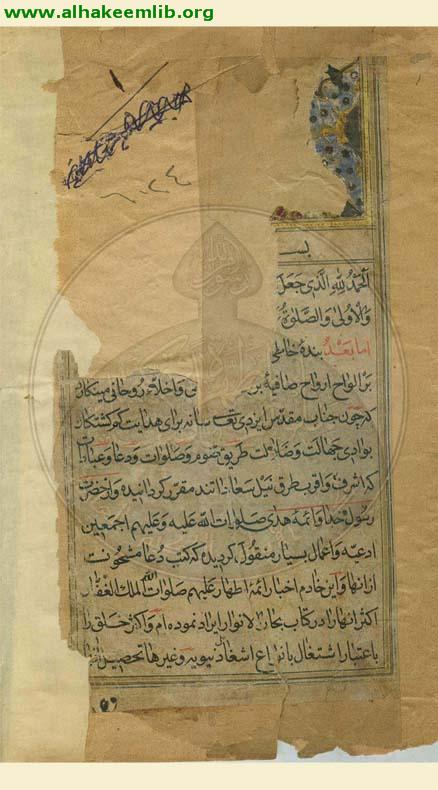 www.alhakeemlib.org
٦٢٤
بســ
الحمد لله الذی جعل
والاولی والصلوة
اما بعد بندهٔ خاطی
بر الواح ارواح صافیهٔ بر و اخلاء روحانی مینکارد
که چون جناب مقدس ایزدی تعـ سانه برای هدایت کم کشتکان
بوادی جهالت وضلالت طریق صوم و صلوات و دعا و عبادات
که اشرف و اقرب طرق نیل سعاداتند مقرر کردانیده و از حضرت
رسول خدا و ائمهٔ هدی صلوات الله علیه وعلیهم اجمعین
ادعیه و اعمال بسیار منقول کردیده که کتب دعا مشحونست
از انها و این خادم اخبار ائمهٔ اطهار علیهم صلوات الله الملک الغفار
اکثر انها را در کتاب بحار الانوار ایراد نموده ام و اکثر خلق را
باعتبار اشتغال بانواع اشغال دنیویه و غیرها تحصیل